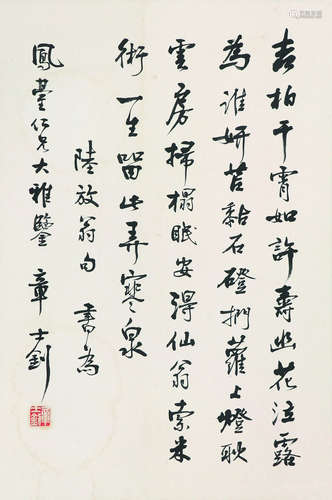 古柏干霄如許壽幽花泣露
為誰妍苔黏石磴捫蘿上燈耿
雲房掃榻眠安得仙翁索米
術一生留此弄寒泉
陸放翁句 書為
鳳臺仁兄大雅鑒 章士釗